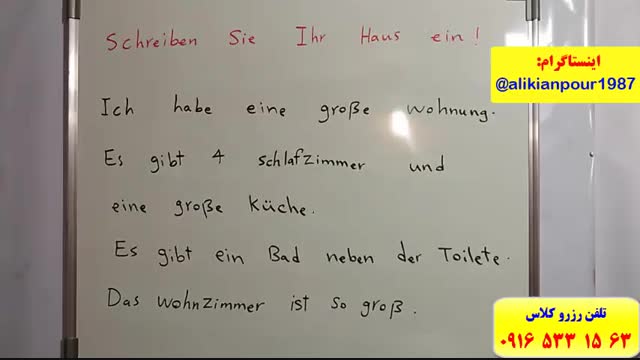 Schreiben Sie Ihr Haus ein!
اینستاگرام:
@alikianpour1987
Ich habe eine große wohnung.
Es gibt 4 schlafzimmer und
eine große Küche.
Es gibt ein Bad neben der Toilete.
Das wohnzimmer ist so groß.
تلفن رزرو کلاس
۰۹۱۶ ۵۳۳ ۱۵ ۶۳